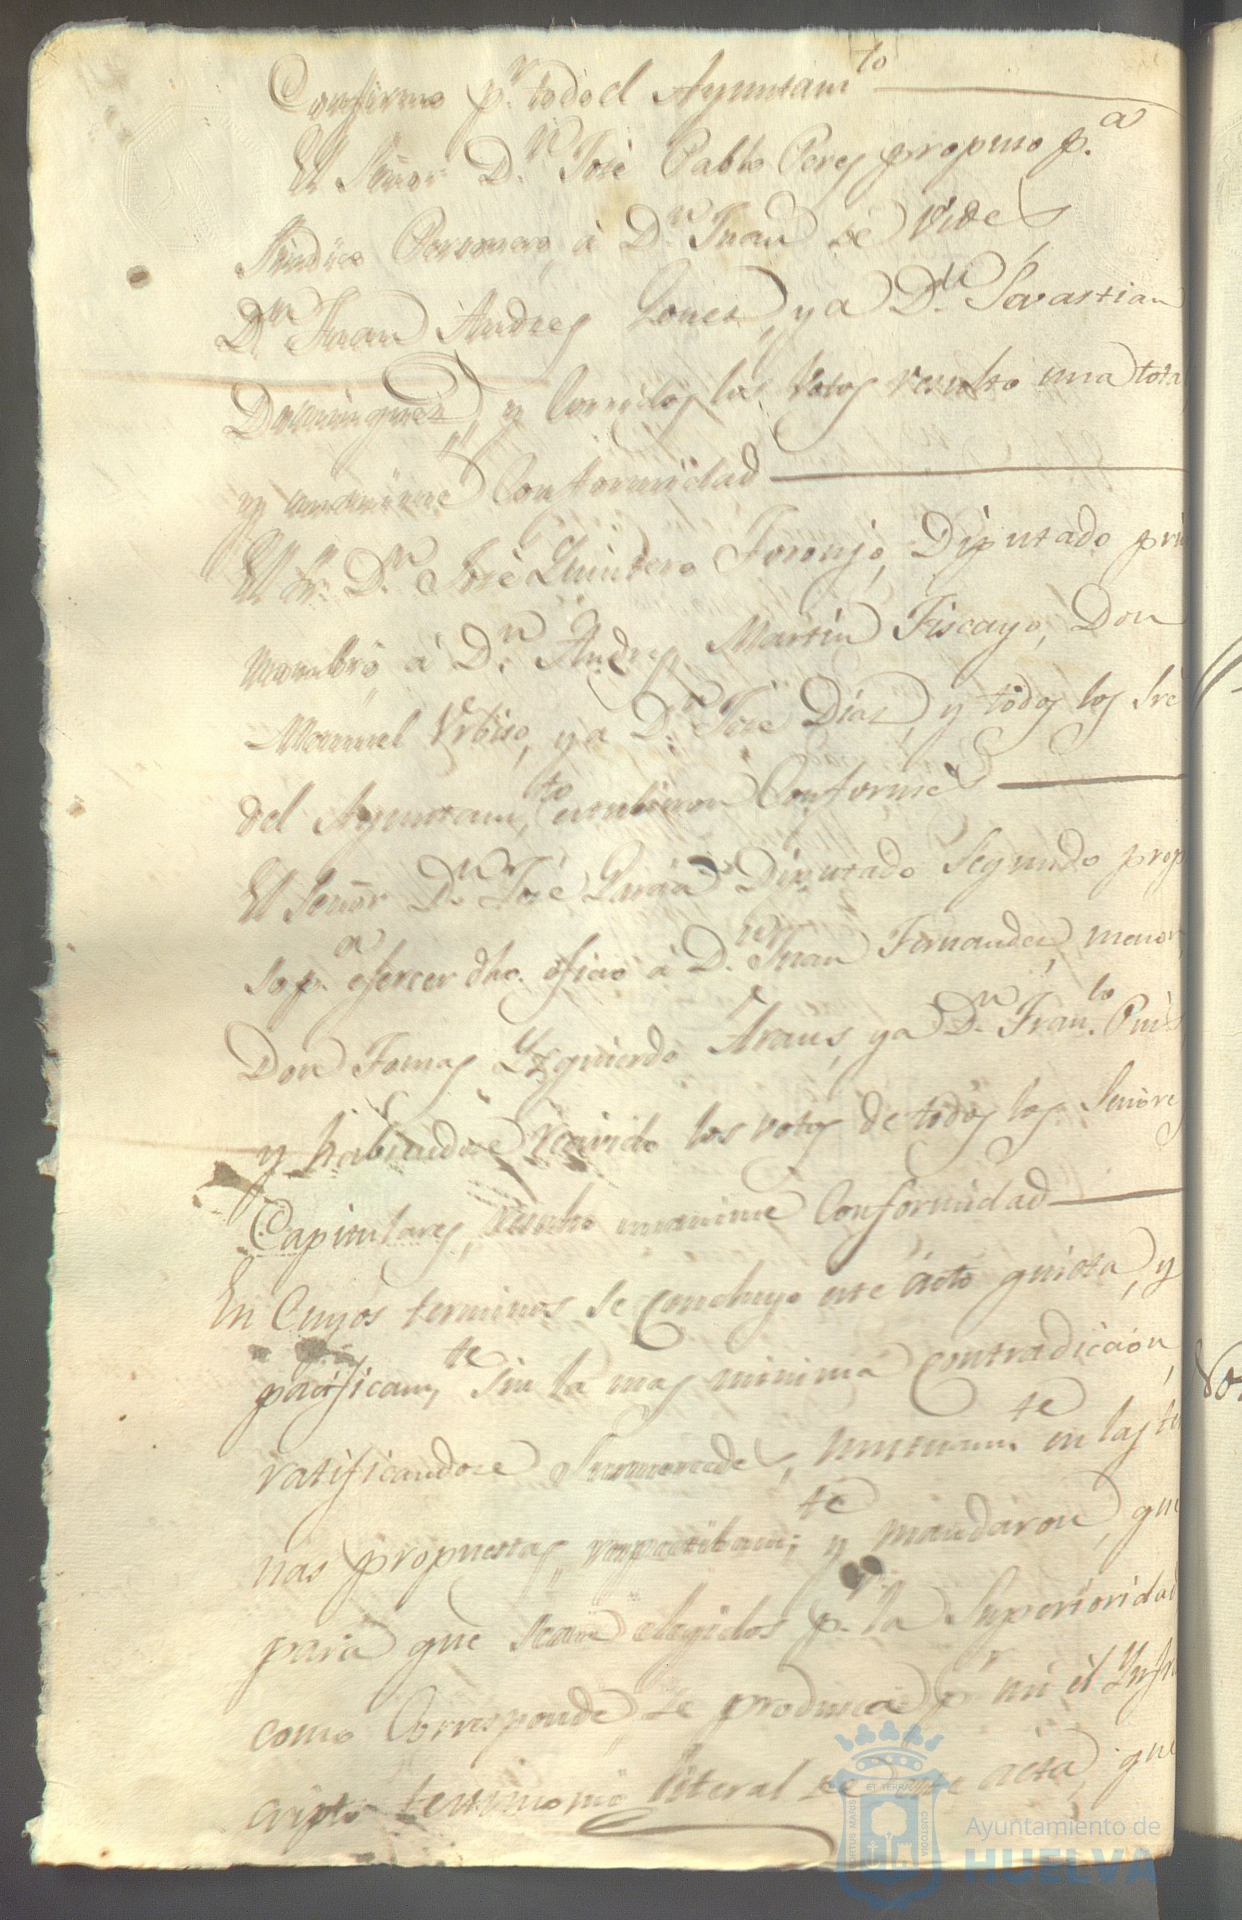 Conforme p.r todo el Ayuntam.to
El Señor D.n José Pablo Perez propuso p.a
Sindico Personero, á D.n Juan de Vides
D.n Juan Andres Gomez, y a D.n Sevastian
Dominguez, y corridos los Votos resulto una tota
y unanime Conformidad
El Sr. D.n José Quintero Toronjo, Diputado pri
nombró á D.n Andres Martin Fiscayo, Don
Manuel Urbiso, y a D.n José Díaz, y todos los Sre
del Ayuntam.to estubieron Conformes
El Señor D.n José Diputado Segundo prop
so p.a esercer dho. oficio á D.n Juan Fernandez, menor,
Don Tomas Yzquierdo Araus, y a D.n Fran.co
y habiendose recivido los votos de todos los Señore
Capitulares, resulto unanime Conformidad
En Cuyos terminos se concluyo este acto quieta, y
pacificam.te sin la mas minima contradicción,
ratificandose Sumercedes, mutuam.te en las te
nas propuestas, respectibam.te y mandaron, que
para que sean elegidos p.r la Superioridad
como Corresponde, se produsca p.r mi el Ynfra
cripto testimonio literal de este acta, que
Ayuntamiento de
HUELVA